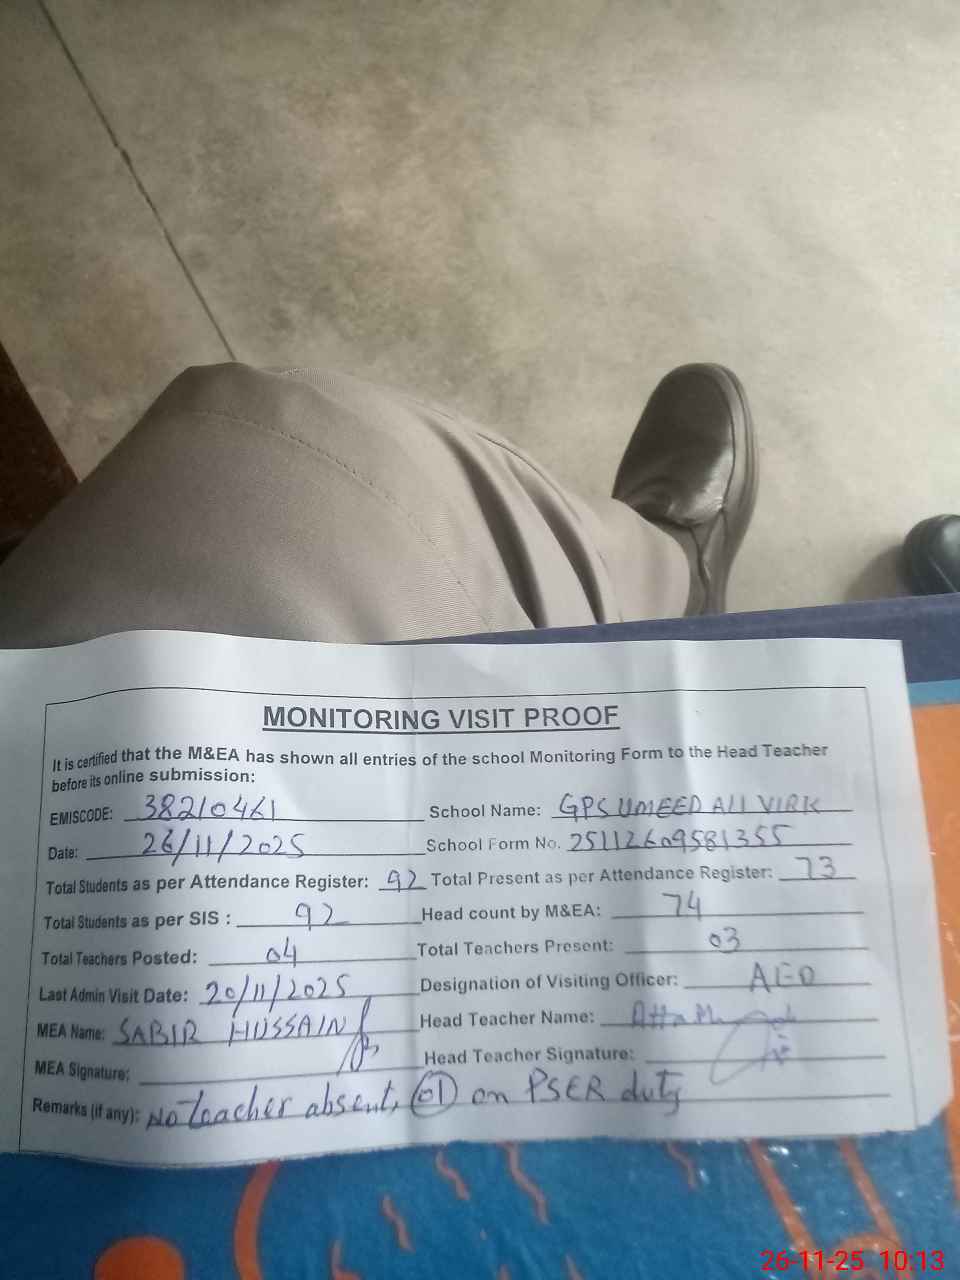 MONITORING VISIT PROOF
It is certified that the M&EA has shown all entries of the school Monitoring Form to the Head Teacher
before its online submission:
EMISCODE: 38210461 School Name: GPS UMEED ALI VIRK
Date: 26/11/2025 School Form No. 25112609581355
Total Students as per Attendance Register: 92 Total Present as per Attendance Register: 73
Total Students as per SIS : 92 Head count by M&EA: 74
Total Teachers Posted: 04 Total Teachers Present: 03
Last Admin Visit Date: 20/11/2025 Designation of Visiting Officer: AEO
MEA Name: SABIR HUSSAIN Head Teacher Name:
MEA Signature: Head Teacher Signature:
Remarks (if any): No teacher absent, 01 on PSER duty
26-11-25 10:13